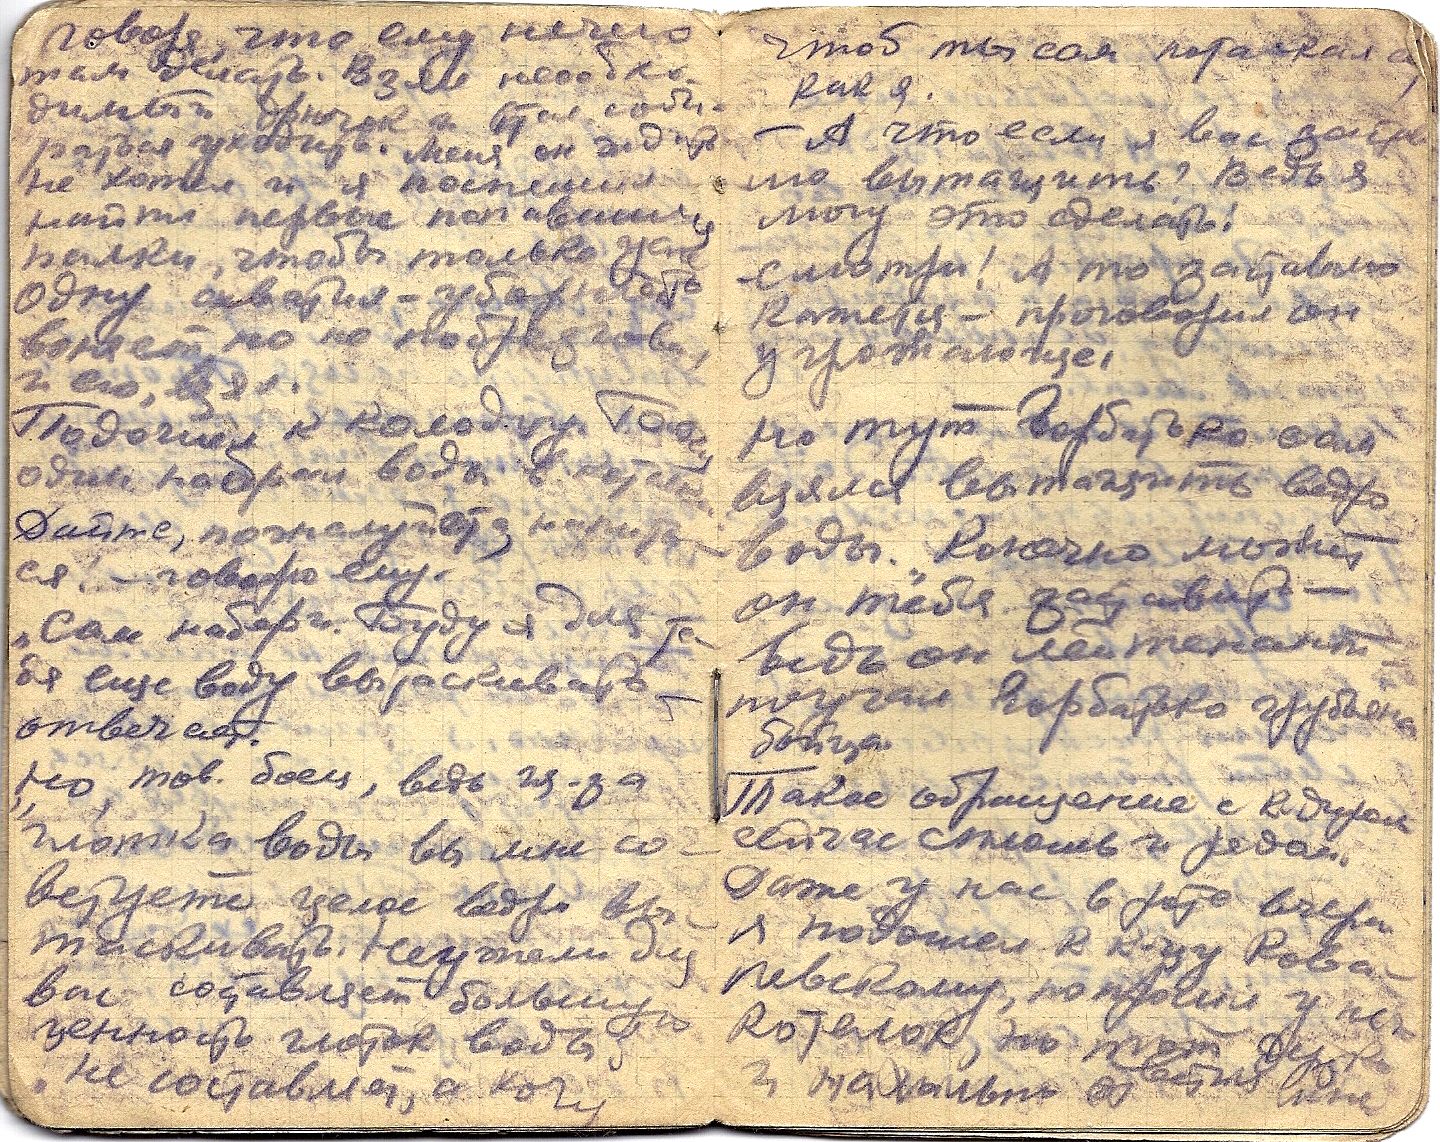 говоря, что ему нечего
там делать. Взял необхо-
димый крючок и стал соби-
раться уходить. Меня он ждать
не хотел и я поспешил
найти первые попавшиеся
палки, чтобы только
одну схватил –
воняет но не побрезговал,
и её, взял.
Подошли к колодцу. Боец
один набрал воды в котелок.
Дайте, пожалуйста, напить-
ся! – говорю ему.
„Сам набери. Буду я для те-
бя еще воду вытаскивать" –
отвечает.
„Но, тов. боец, ведь из-за
глотка воды вы мне со-
ветуете целое ведро вы-
таскивать. Неужели для
вас составляет большую
ценность глоток воды?
„Не составляет, а хочу
чтоб ты сам потаскал,
как я.
– А что если я вас застав-
лю вытащить? Ведь я
могу это сделать!
Смотри! А то заставлю
кажется – проговорил он
угрожающе.
Но тут Горбатько сам
взялся вытащить ведро
воды. „Конечно может
он тебя заставить –
ведь он лейтенант" –
поучал Горбатько грубияна
бойца.
Такое обращение с к-диром
сейчас сплошь и рядом.
Даже у нас в роте вчера
я подошел к к-цу Кова-
левскому, попросил у него
котелок, но тот
и нахально ответил мне